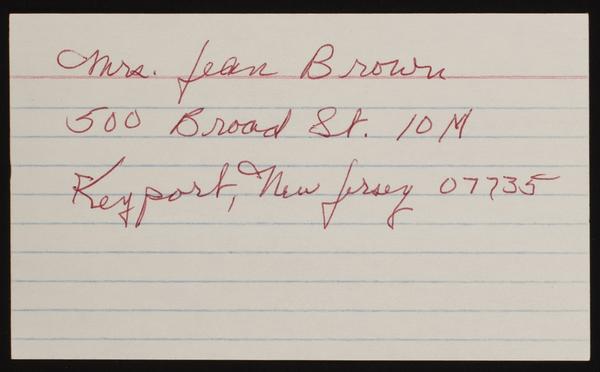 Mrs. Jean Brown
500 Broad St. 10M
Keyport, New Jersey 07735